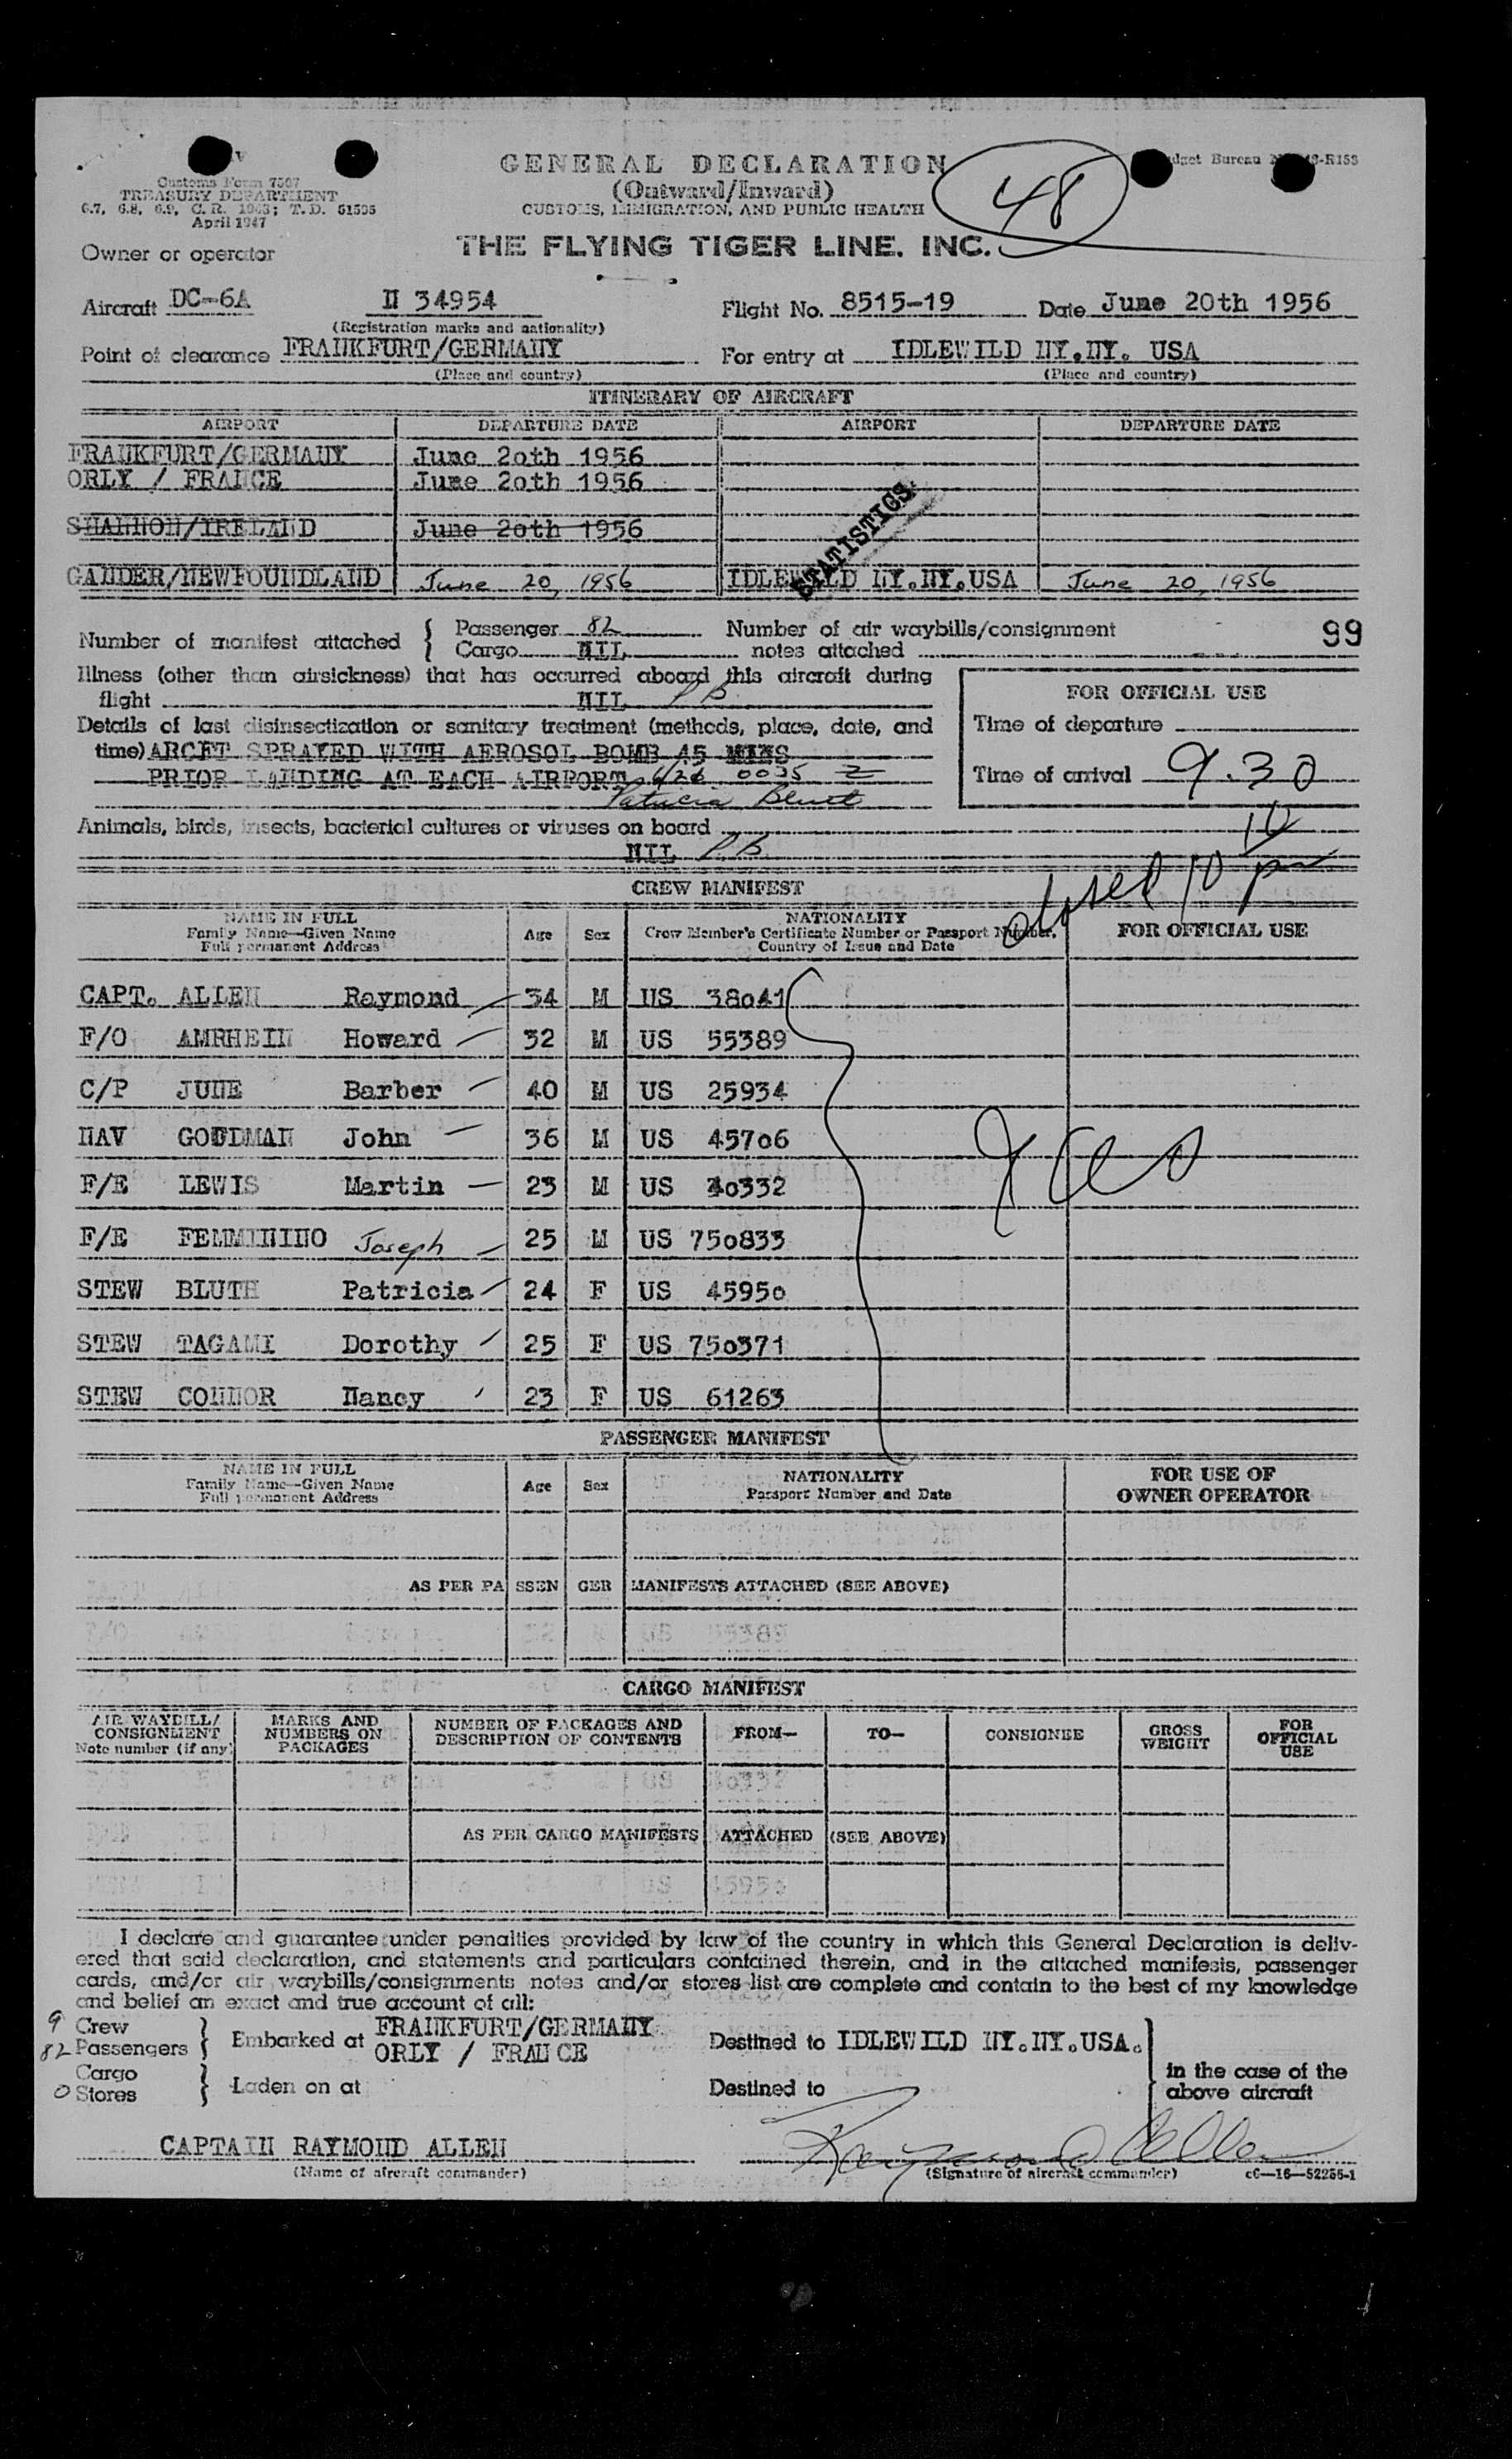 GENERAL DECLARATION
(Outward/Inward)
CUSTOMS, IMMIGRATION, AND PUBLIC HEALTH
48
Budget Bureau
Customs Form 7507
TREASURY DEPARTMENT
6.7, 6.8, 6.9, C. R. 1943; T. D. 51595
April 1947
Owner or operator THE FLYING TIGER LINE. INC.
Aircraft DC-6A N 34954 Flight No. 8515-19 Date June 20th 1956
(Registration marks and nationality)
Point of clearance FRANKFURT/GERMANY For entry at IDLEWILD NY.NY. USA
(Place and country) (Place and country)
ITINERARY OF AIRCRAFT
AIRPORT DEPARTURE DATE AIRPORT DEPARTURE DATE
FRANKFURT/GERMANY June 2oth 1956
ORLY / FRANCE June 2oth 1956
STATISTICS
SHANNON/IRELAND June 2oth 1956
GANDER/NEWFOUNDLAND June 20, 1956 IDLEWILD NY.NY.USA June 20, 1956
Number of manifest attached { Passenger 82 Number of air waybills/consignment 99
Cargo NIL notes attached
Illness (other than airsickness) that has occurred aboard this aircraft during
flight NIL P B
FOR OFFICIAL USE
Details of last disinsectization or sanitary treatment (methods, place, date, and
Time of departure
time) ARCFT SPRAYED WITH AEROSOL BOMB 45 MINS
PRIOR LANDING AT EACH AIRPORT 0035 Z
Time of arrival 9.30
Patricia Bluth
Animals, birds, insects, bacterial cultures or viruses on board
NIL P.B.
closed 10 pm
CREW MANIFEST
NAME IN FULL
Family Name—Given Name
Full permanent Address
Age Sex
NATIONALITY
Crew Member's Certificate Number or Passport Number,
Country of Issue and Date
FOR OFFICIAL USE
CAPT. ALLEN Raymond 34 M US 38o41
F/O AMRHEIN Howard 32 M US 55389
C/P JUNE Barber 40 M US 25934
NAV GOUDMAN John 36 M US 457o6
F/E LEWIS Martin 23 M US 3o332
F/E FEMMININO Joseph 25 M US 75o833
STEW BLUTH Patricia 24 F US 4595o
STEW TAGAMI Dorothy 25 F US 75o371
STEW CONNOR Nancy 23 F US 61263
PASSENGER MANIFEST
NAME IN FULL
Family Name—Given Name
Full permanent Address
Age Sex
NATIONALITY
Passport Number and Date
FOR USE OF
OWNER OPERATOR
AS PER PASSENGER MANIFESTS ATTACHED (SEE ABOVE)
CARGO MANIFEST
AIR WAYBILL/
CONSIGNMENT
Note number (if any)
MARKS AND
NUMBERS ON
PACKAGES
NUMBER OF PACKAGES AND
DESCRIPTION OF CONTENTS
FROM— TO— CONSIGNEE
GROSS
WEIGHT
FOR
OFFICIAL
USE
AS PER CARGO MANIFESTS ATTACHED (SEE ABOVE)
I declare and guarantee under penalties provided by law of the country in which this General Declaration is deliv-
ered that said declaration, and statements and particulars contained therein, and in the attached manifests, passenger
cards, and/or air waybills/consignments notes and/or stores list are complete and contain to the best of my knowledge
and belief an exact and true account of all:
9 Crew
82 Passengers } Embarked at FRANKFURT/GERMANY ORLY / FRANCE Destined to IDLEWILD NY.NY.USA.
Cargo
0 Stores } Laden on at Destined to
in the case of the
above aircraft
CAPTAIN RAYMOND ALLEN Raymond Allen
(Name of aircraft commander) (Signature of aircraft commander) c6—16—52255-1